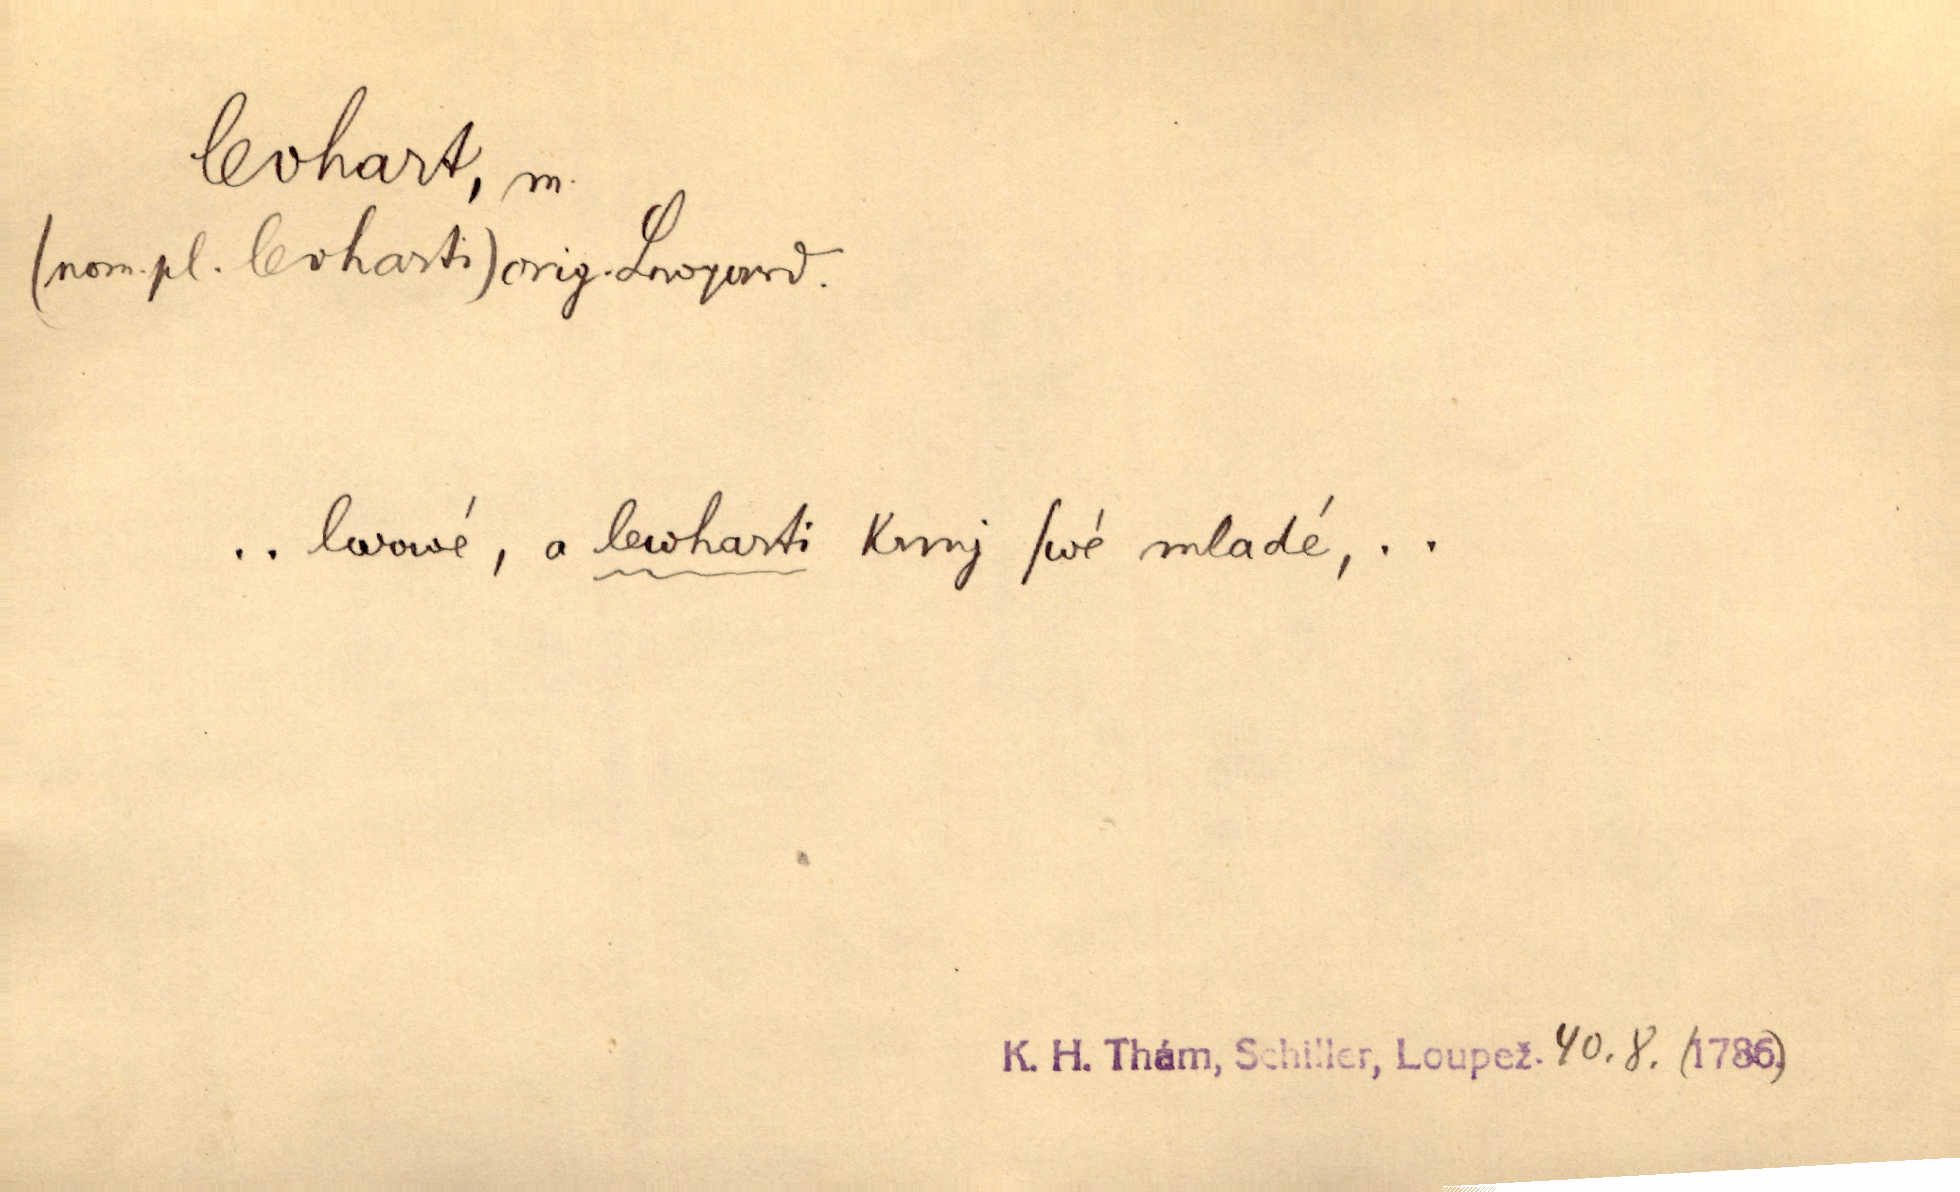 levhart, m.
(nom. pl. levharti) orig. Leopard.
.. lwowé, a lewharti krmj ſwé mladé, ..
K. H. Thám, Schiller, Loupež. 40. 8. (1786)